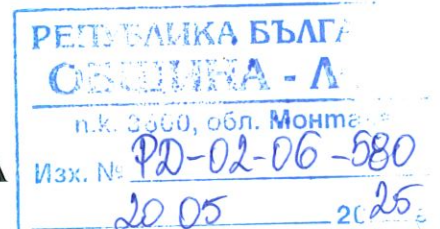 РЕПУБЛИКА БЪЛГА
ОБЩИНА - Л
п.к. 3600, обл. Монта
А Изх. № РД-02-06-580
20 05 2025